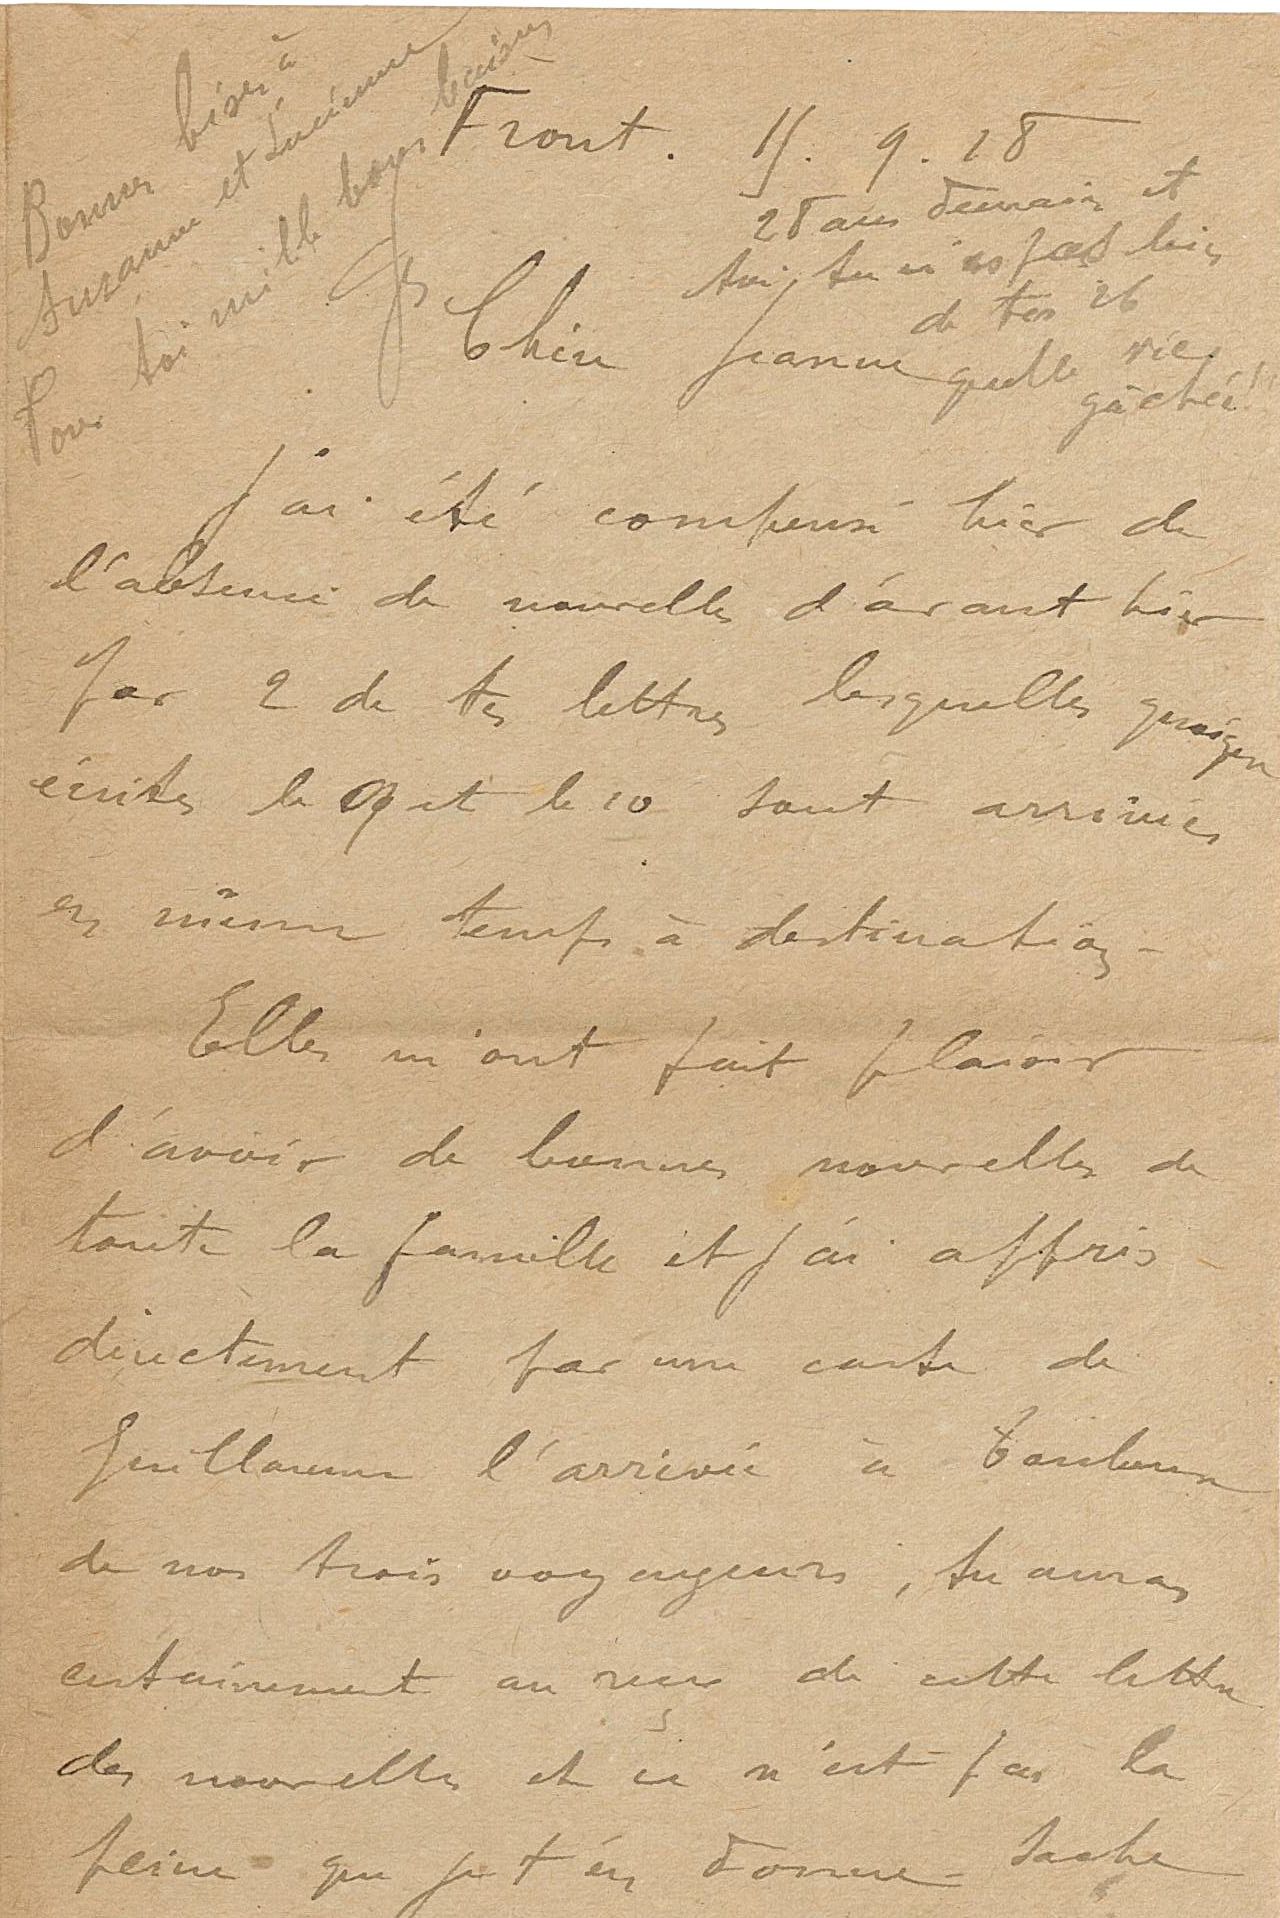 Bonnes bises à
Suzanne et Lucienne
Pour toi mille bons baisers
Front. 15. 9. 18
28 ans demain et
toi tu n'es pas loin
de tes 26
quelle vie
gâchée!!
Chère Jeanne
J'ai été compensé hier de
l'absence de nouvelles d'avant hier
par 2 de tes lettres lesquelles quoique
écrites le 9 et le 10 sont arrivées
en même temps à destination -
Elles m'ont fait plaisir
d'avoir de bonnes nouvelles de
toute la famille et j'ai appris
directement par une carte de
Guillaume l'arrivée à
de nos trois voyageurs, tu auras
certainement au reçu de cette lettre
des nouvelles et ce n'est pas la
peine que je t'en donne - Sache